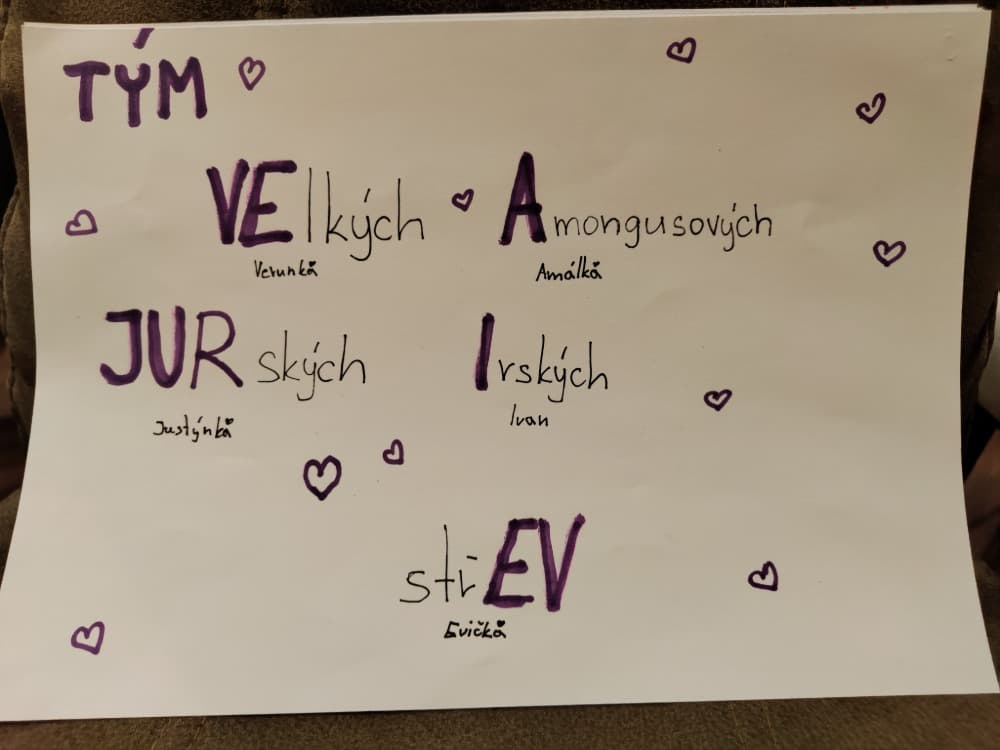 TÝM
VElkých Amongusových
Verunka Amálka
JURských Irských
Justýnka Ivan
střEV
Evička